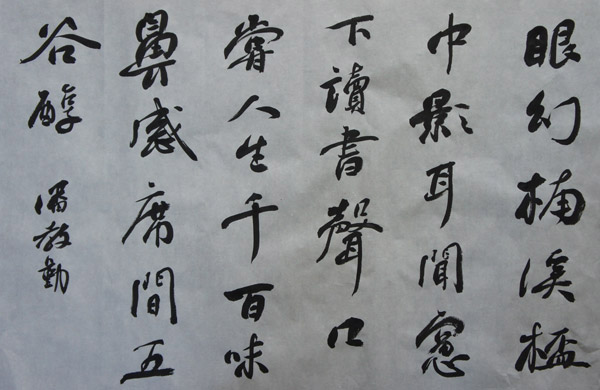 眼幻楠溪
中影耳聞窻
下讀書聲口
嘗人生千百味
鼻感席間五
谷醇
教勤